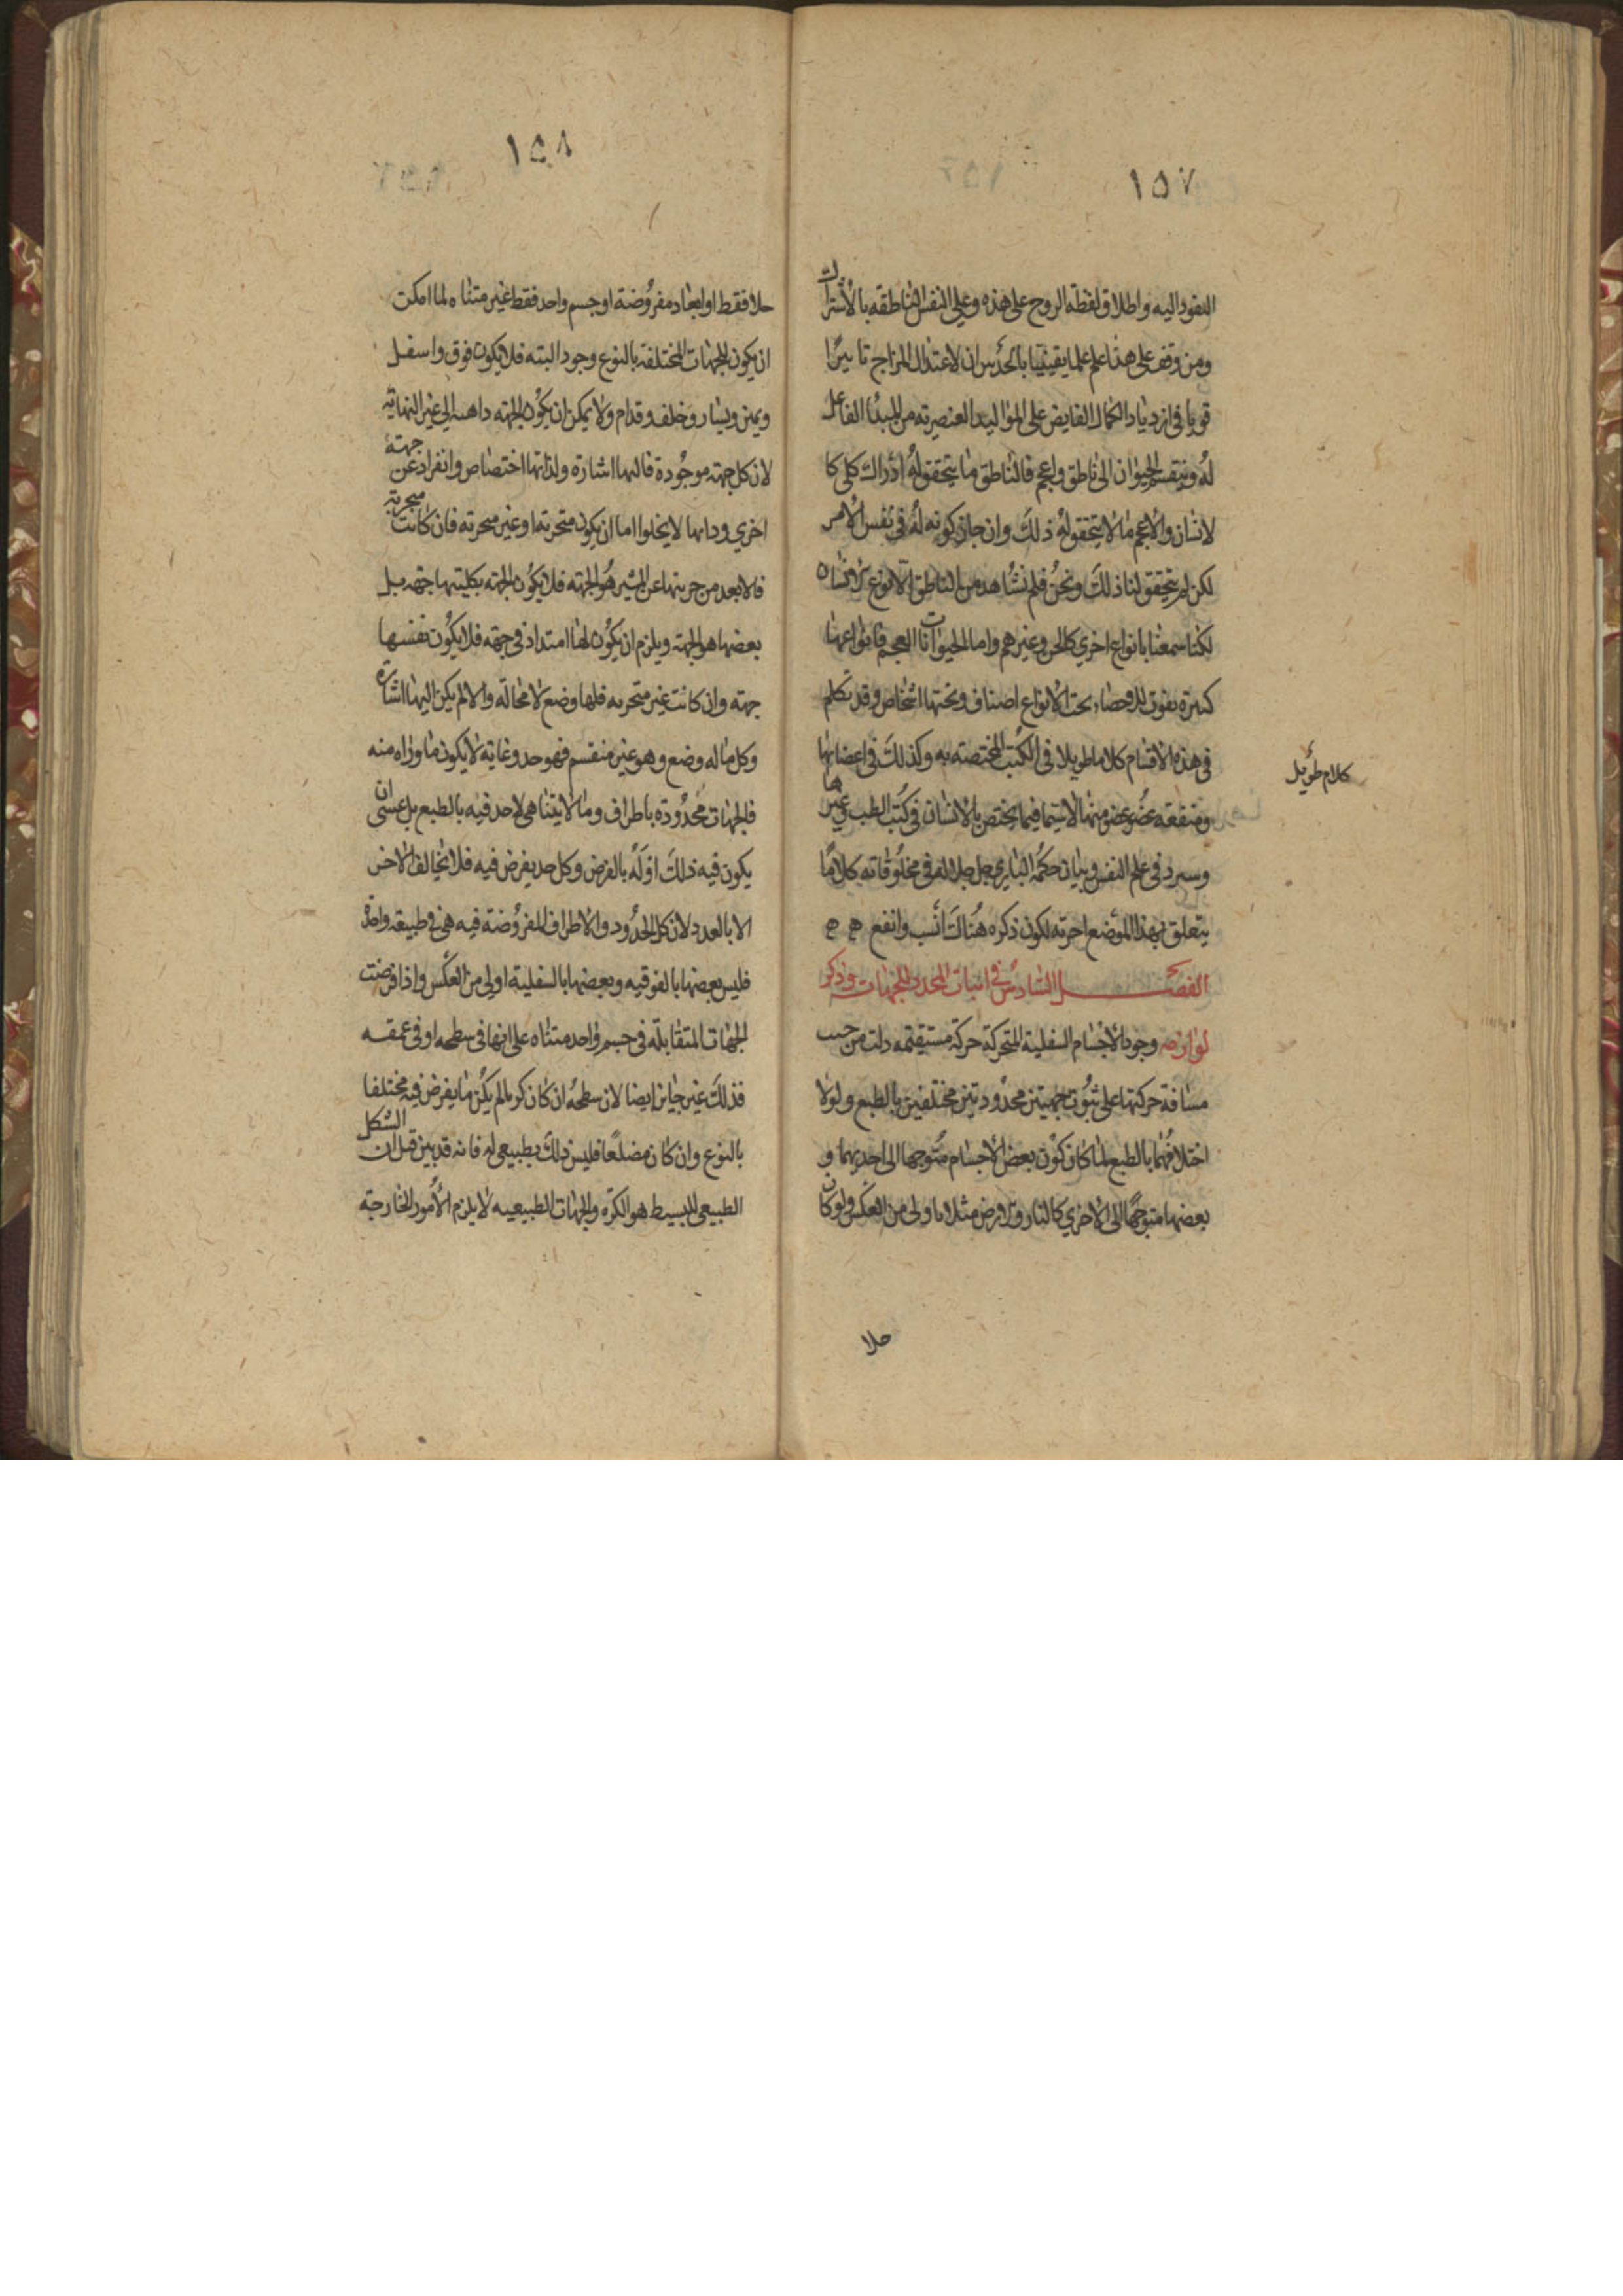 ١٥٧
النفوذ اليه واطلاق لفظة الروح على هذه وعلى النفس الناطقه بالاشتراك
ومن وقف على هذا علم علما يقينيا بالحدس ان لاعتدال المزاج تاثيرًا
قويا فى ازدياد الكمال الفايض على المواليد العنصريه من المبدا الفاعل
لهُ وينقسم الحيوان الى ناطق واعجم فالناطق ما يتحقق لهُ ادراك كلى كا
لانسان والاعجم ما لا يتحقق لهُ ذلك وان جاز كونه لهُ فى نفس الامر
لكن لم يتحقق لنا ذلك ونحنُ فلم نشاهد من الناطق الا نوع الانسان
لكنا سمعنا بانواع اخري كالجن وغيرهم واما الحيوانات العجم فانواعها
كثيرة يفوت الاحصاء تحت الانواع اصناف وتحتها اشخاص وقد تكلم
فى هذه الاقسام كلاما طويلا فى الكتب المختصه به وكذلك فى اعضائها
كلام طويل
ومنفعه عضو عضو منها لا سيما فيما يختص بالانسان فى كتب الطب وغيرها
وسيرد فى علم النفس وبيان حكمه البارى جل جلاله فى مخلوقاته كلامًا
يتعلق بهذا الموضع اخرته لكون ذكره هُناك انسب وانفع ۵ ۵
الفصل السادس فى اثبات المحدد للجهات وذكر
لوازمه وجود الاجسام السفلية المتحركة حركة مستقيمه دلت من حيث
مسافة حركتها على ثبوت جهتين محدودتين مختلفين بالطبع ولولا
اختلافُهما بالطبع لما كان كون بعض الاجسام متوجها الى احديهما و
بعضها متوجهًا الى الاخري كالنار والارض مثلا باولى من العكس ولو كان
خلا
١٥٨
خلا فقط او ابعاد مفروضة او جسم واحد فقط غير متناه لما امكن
ان يكون للجهات المختلفة بالنوع وجود البته فلا يكون فوق واسفل
ويمين ويسار وخلف وقدام ولا يمكن ان يكون الجهته داهبه الى غير النهاية
لان كل جهته موجُودة فاليها اشارة ولذاتها اختصاص وانفراد عن جهتة
اخري وذاتها لا يخلوا اما ان يكون متجزيه او غير متجزيه فان كانت متجزية
فالابعد من جزيها عن المشير هُو الجهته فلا يكُون الجهته بكليتها جهة بل
بعضها هو الجهته ويلزم ان يكُون لها امتداد فى جهة فلا يكون نفسها
جهته وان كانت غير متجزيه فلها وضع لا محالة والا لم يكن اليها اشارة
وكل ما له وضع وهو غير منقسم فهو حد وغاية لا يكون ما وراه منه
فالجهات محدودة باطراف وما لا يتناهى لا حد فيه بالطبع بل عسى ان
يكون فيه ذلك اوله بالفرض وكل حد يفرض فيه فلا يخالف الاخر
الا بالعدد لان كل الحدُود والاطراف المفروُضة فيه هى فى طبيعة واحدة
فليس بعضها بالفوقيه وبعضها بالسفلية اولى من العكس واذا فرضت
الجهات المتقابلة فى جسم واحد متناه على انها فى سطحه او فى عمقه
فذلك غير جايز ايضا لان سطحهُ ان كان كريا لم يكُن ما يفرض فيه مختلفا
بالنوع وان كان مضلعًا فليس ذلك بطبيعى له فانه قد بين قبل ان الشكل
الطبيعى للبسيط هو الكرة والجهات الطبيعيه لا يلزم الامور الخارجة